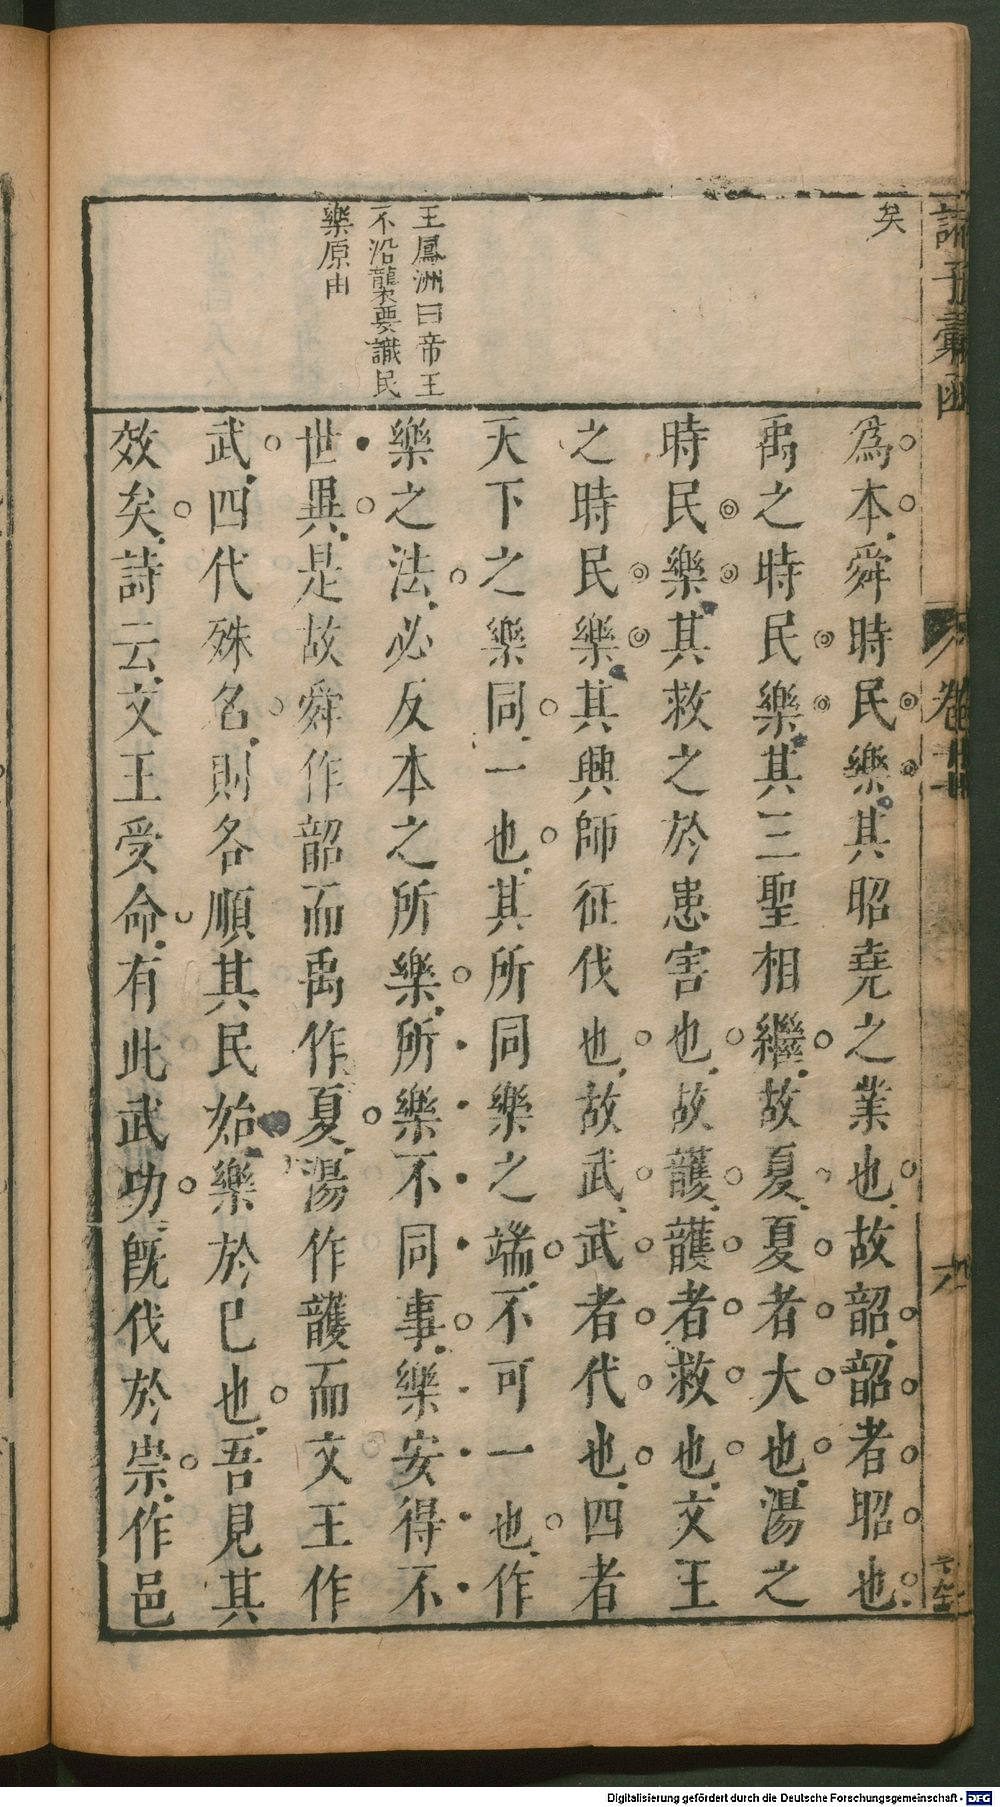 諸子彙函
卷
矣
王鳳洲曰帝王
不沿襲要識民
樂原由
爲本舜時民樂其昭堯之業也故韶韶者昭也
禹之時民樂其三聖相繼故夏夏者大也湯之
時民樂其救之於患害也故頀頀者救也文王
之時民樂其興師征伐也故武武者代也四者
天下之樂同一也其所同樂之端不可一也作
樂之法必反本之所樂所樂不同事樂安得不
世異是故舜作韶而禹作夏湯作頀而文王作
武四代殊名則各順其民始樂於已也吾見其
效矣詩云文王受命有此武功旣伐於崇作邑
Digitalisierung gefördert durch die Deutsche Forschungsgemeinschaft - DFG